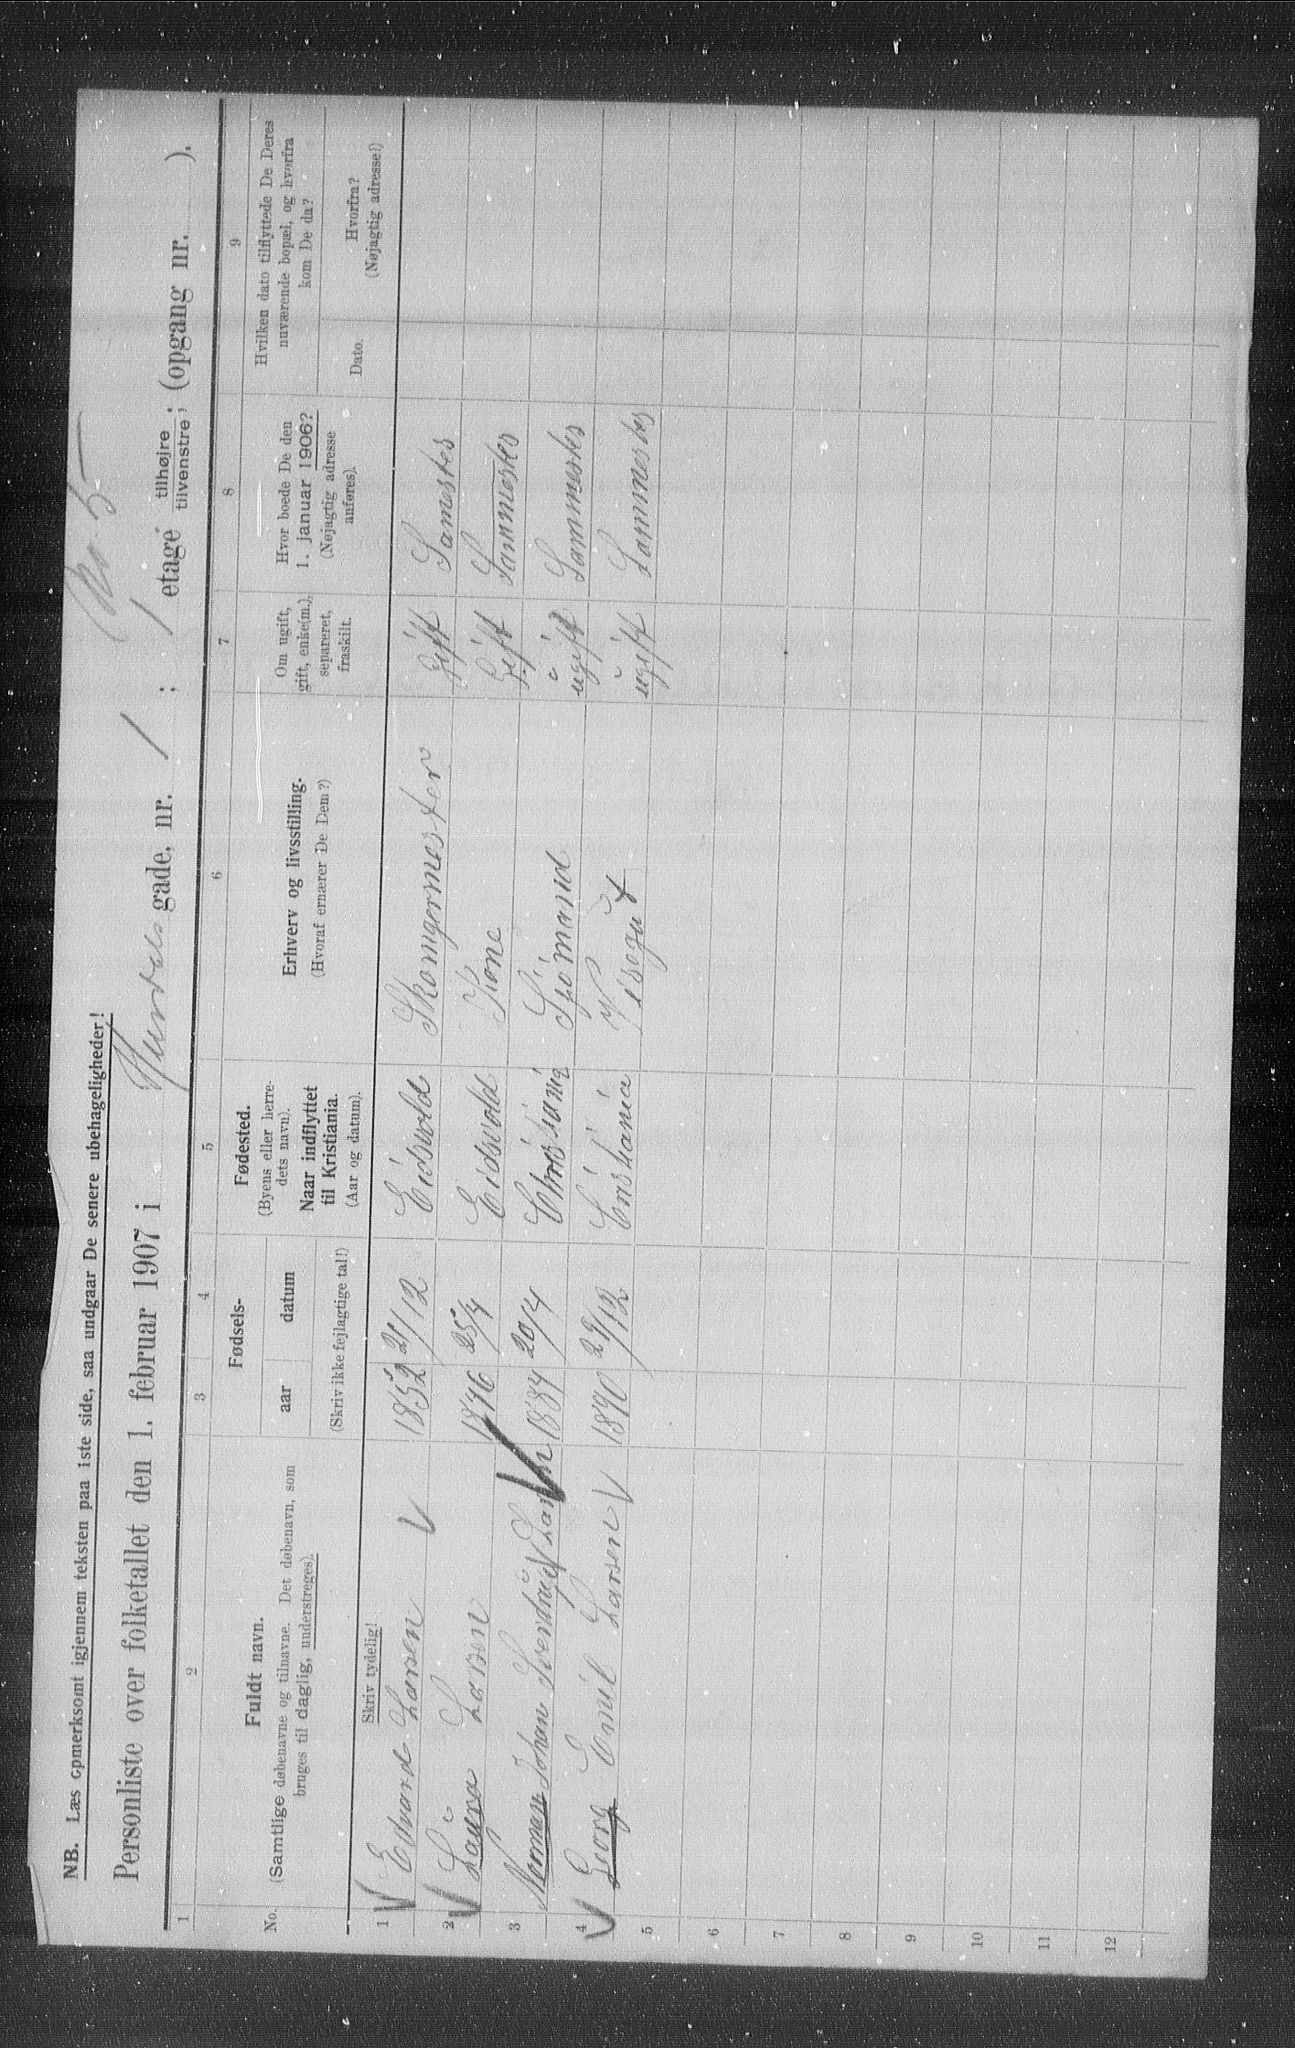 NB. Læs opmerksomt igjennem teksten paa 1ste side, saa undgaar De senere ubehageligheder!
No. 5
Personliste over folketallet den 1. februar 1907 i gade, nr. 1 ; 1 etage tilhøjre, tilvenstre, (opgang nr. ).
1 2 3 4 5 6 7 8 9
No.
Fuldt navn.
(Samtlige døbenavne og tilnavne. Det døbenavn, som
bruges til daglig, understreges).
Fødsels-
aar datum
(Skriv ikke fejlagtige tal!)
Fødested.
(Byens eller herre-
dets navn).
Naar indflyttet
til Kristiania.
(Aar og datum).
Erhverv og livsstilling.
(Hvoraf ernærer De Dem?)
Om ugift,
gift, enke(m.),
separeret,
fraskilt.
Hvor boede De den
1. januar 1906?
(Nøjagtig adresse
anføres).
Hvilken dato tilflyttede De Deres
nuværende bopæl, og hvorfra
kom De da?
Dato.
Hvorfra?
(Nøjagtig adresse!)
Skriv tydelig!
1 Edvard Larsen 1852 21/12 Eidsvold Skomgermester Gift Samestes
2 Laura Larsen 25/4 Eidsvold Gift Sammestes
3 Johan Larsen 1884 20/4 Christiania Sjömand ugift Sammestes
4 Georg Emil Larsen 1890 29/12 Cristiania Visegut ugift Sammestes
5
6
7
8
9
10
11
12